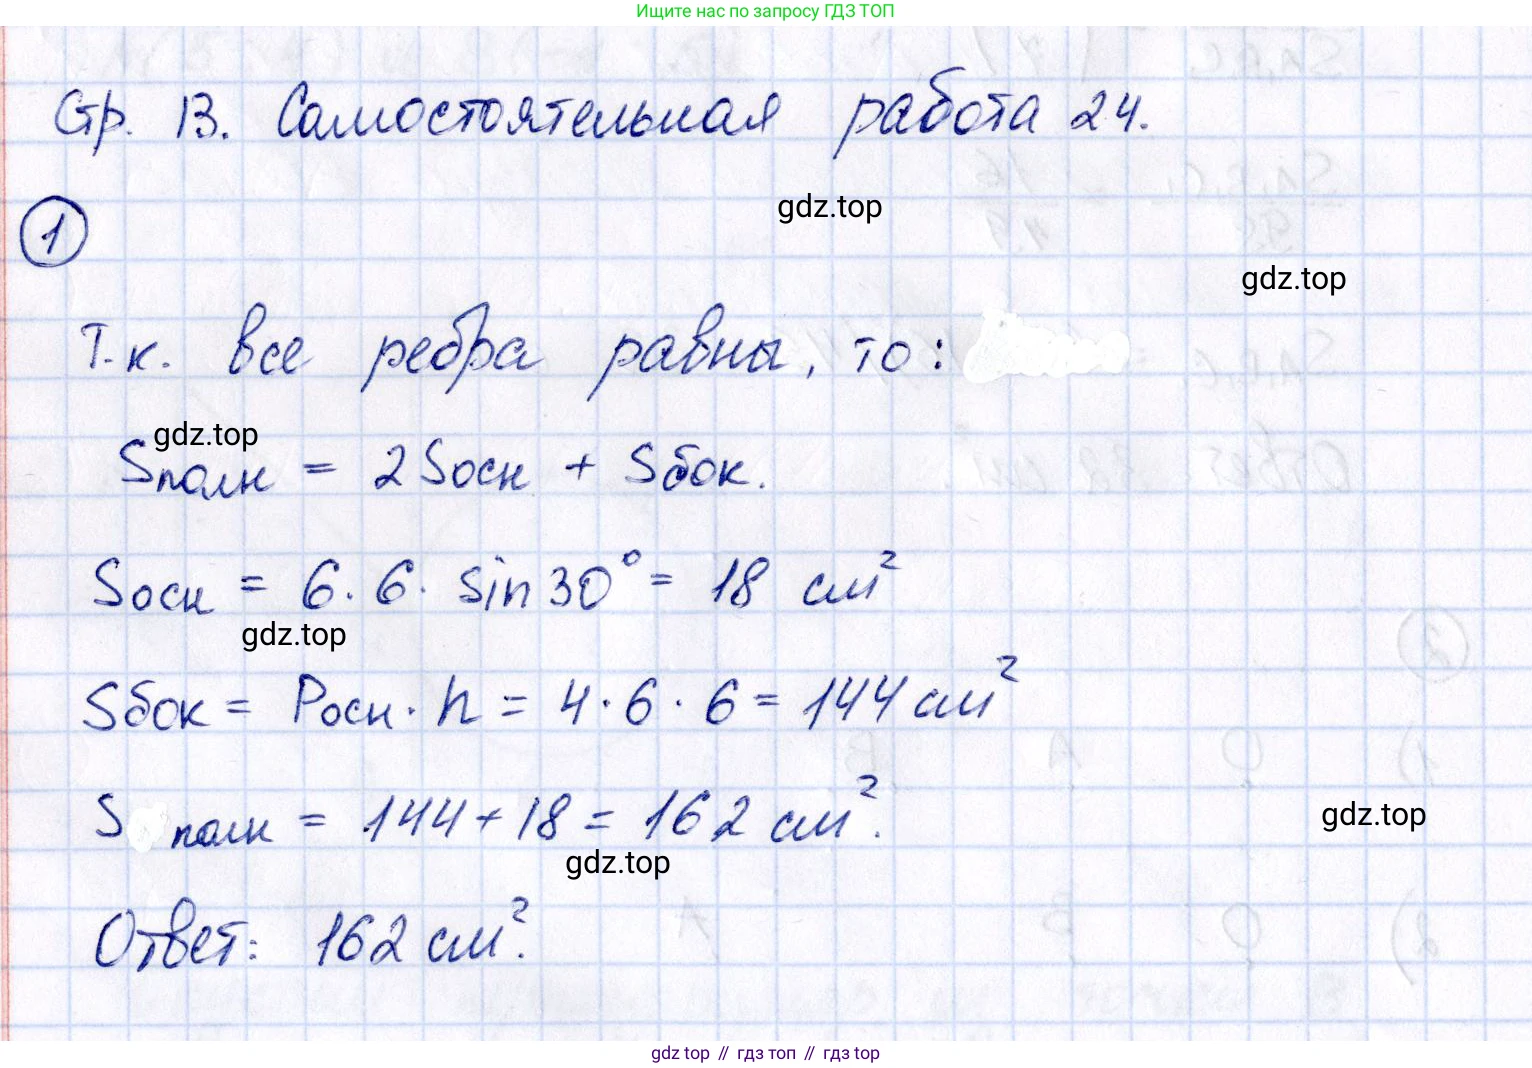 Ищите нас по запросу ГДЗ ТОП
Стр. 13. Самостоятельная работа 24.
gdz.top
1
gdz.top
Т.к. все ребра равны, то:
gdz.top
Sполн = 2Sосн + Sбок.
Sосн = 6 · 6 · sin 30° = 18 см²
gdz.top
Sбок = Pосн · h = 4 · 6 · 6 = 144 см²
S полн = 144 + 18 = 162 см².
gdz.top
gdz.top
Ответ: 162 см².
gdz top // гдз топ // гдз top